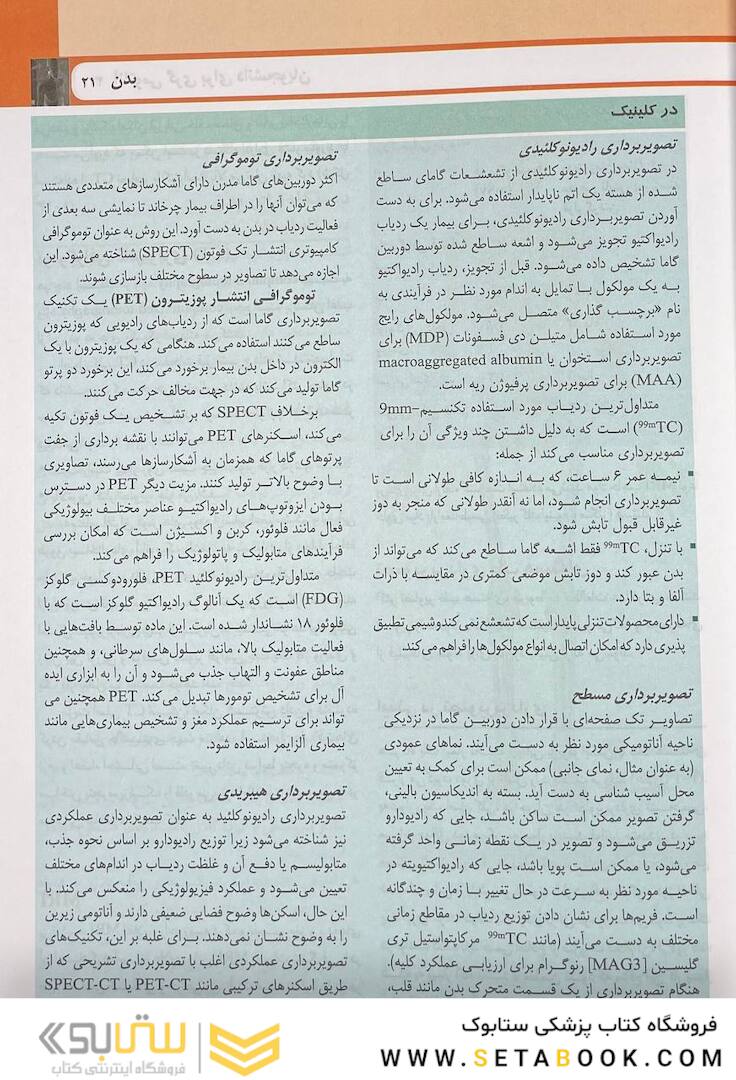 بدن ۲۱
در کلینیک
تصویربرداری رادیونوکلئیدی
در تصویربرداری رادیونوکلئیدی از تشعشعات گامای ساطع
شده از هسته یک اتم ناپایدار استفاده می‌شود. برای به دست
آوردن تصویربرداری رادیونوکلئیدی، برای بیمار یک ردیاب
رادیواکتیو تجویز می‌شود و اشعه ساطع شده توسط دوربین
گاما تشخیص داده می‌شود. قبل از تجویز، ردیاب رادیواکتیو
به یک مولکول با تمایل به اندام مورد نظر در فرآیندی به
نام «برچسب گذاری» متصل می‌شود. مولکول‌های رایج
مورد استفاده شامل متیلن دی فسفونات (MDP) برای
تصویربرداری استخوان یا macroaggregated albumin
(MAA) برای تصویربرداری پرفیوژن ریه است.
متداول‌ترین ردیاب مورد استفاده تکنسیم–9mm
(99mTC) است که به دلیل داشتن چند ویژگی آن را برای
تصویربرداری مناسب می‌کند از جمله:
▪ نیمه عمر ۶ ساعت، که به اندازه کافی طولانی است تا
تصویربرداری انجام شود، اما نه آنقدر طولانی که منجر به دوز
غیرقابل قبول تابش شود.
▪ با تنزل، 99mTC فقط اشعه گاما ساطع می‌کند که می‌تواند از
بدن عبور کند و دوز تابش موضعی کمتری در مقایسه با ذرات
آلفا و بتا دارد.
▪ دارای محصولات تنزلی پایدار است که تشعشع نمی‌کند و شیمی تطبیق
پذیری دارد که امکان اتصال به انواع مولکول‌ها را فراهم می‌کند.
تصویربرداری مسطح
تصاویر تک صفحه‌ای با قرار دادن دوربین گاما در نزدیکی
ناحیه آناتومیکی مورد نظر به دست می‌آیند. نماهای عمودی
(به عنوان مثال، نمای جانبی) ممکن است برای کمک به تعیین
محل آسیب شناسی به دست آید. بسته به اندیکاسیون بالینی،
گرفتن تصویر ممکن است ساکن باشد، جایی که رادیودارو
تزریق می‌شود و تصویر در یک نقطه زمانی واحد گرفته
می‌شود، یا ممکن است پویا باشد، جایی که رادیواکتیویته در
ناحیه مورد نظر به سرعت در حال تغییر با زمان و چندگانه
است. فریم‌ها برای نشان دادن توزیع ردیاب در مقاطع زمانی
مختلف به دست می‌آیند (مانند 99mTC مرکاپتواستیل تری
گلیسین [MAG3] رنوگرام برای ارزیابی عملکرد کلیه).
هنگام تصویربرداری از یک قسمت متحرک بدن مانند قلب،
تصویربرداری توموگرافی
اکثر دوربین‌های گاما مدرن دارای آشکارسازهای متعددی هستند
که می‌توان آنها را در اطراف بیمار چرخاند تا نمایشی سه بعدی از
فعالیت ردیاب در بدن به دست آورد. این روش به عنوان توموگرافی
کامپیوتری انتشار تک فوتون (SPECT) شناخته می‌شود. این
اجازه می‌دهد تا تصاویر در سطوح مختلف بازسازی شوند.
توموگرافی انتشار پوزیترون (PET) یک تکنیک
تصویربرداری گاما است که از ردیاب‌های رادیویی که پوزیترون
ساطع می‌کنند استفاده می‌کند. هنگامی که یک پوزیترون با یک
الکترون در داخل بدن بیمار برخورد می‌کند، این برخورد دو پرتو
گاما تولید می‌کند که در جهت مخالف حرکت می‌کنند.
برخلاف SPECT که بر تشخیص یک فوتون تکیه
می‌کند، اسکنرهای PET می‌توانند با نقشه برداری از جفت
پرتوهای گاما که همزمان به آشکارسازها می‌رسند، تصاویری
با وضوح بالاتر تولید کنند. مزیت دیگر PET در دسترس
بودن ایزوتوپ‌های رادیواکتیو عناصر مختلف بیولوژیکی
فعال مانند فلوئور، کربن و اکسیژن است که امکان بررسی
فرآیندهای متابولیک و پاتولوژیک را فراهم می‌کند.
متداول‌ترین رادیونوکلئید PET، فلورودوکسی گلوکز
(FDG) است که یک آنالوگ رادیواکتیو گلوکز است که با
فلوئور ۱۸ نشاندار شده است. این ماده توسط بافت‌هایی با
فعالیت متابولیک بالا، مانند سلول‌های سرطانی، و همچنین
مناطق عفونت و التهاب جذب می‌شود و آن را به ابزاری ایده
آل برای تشخیص تومورها تبدیل می‌کند. PET همچنین می
تواند برای ترسیم عملکرد مغز و تشخیص بیماری‌هایی مانند
بیماری آلزایمر استفاده شود.
تصویربرداری هیبریدی
تصویربرداری رادیونوکلئید به عنوان تصویربرداری عملکردی
نیز شناخته می‌شود زیرا توزیع رادیودارو بر اساس نحوه جذب،
متابولیسم یا دفع آن و غلظت ردیاب در اندام‌های مختلف
تعیین می‌شود و عملکرد فیزیولوژیکی را منعکس می‌کند. با
این حال، اسکن‌ها وضوح فضایی ضعیفی دارند و آناتومی زیرین
را به وضوح نشان نمی‌دهند. برای غلبه بر این، تکنیک‌های
تصویربرداری عملکردی اغلب با تصویربرداری تشریحی که از
طریق اسکنرهای ترکیبی مانند PET-CT یا SPECT-CT
فروشگاه کتاب پزشکی ستابوک
WWW.SETABOOK.COM
ستابوک
فروشگاه اینترنتی کتاب